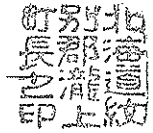 北海道紋
別郡瀧上
町長之印